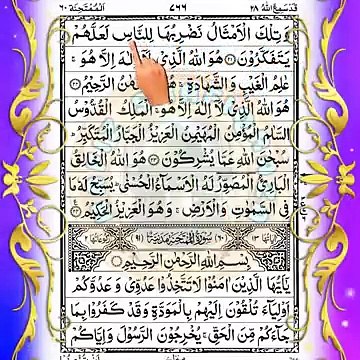 قد سمع الله ٢٨
٧٦٦
الممتحنة ٦٠
وَتِلْكَ الْاَمْثَالُ نَضْرِبُهَا لِلنَّاسِ لَعَلَّهُمْ
يَتَفَكَّرُوْنَ هُوَ اللّٰهُ الَّذِیْ لَاۤ اِلٰهَ اِلَّا هُوَ
عٰلِمُ الْغَیْبِ وَالشَّهَادَةِ هُوَ الرَّحْمٰنُ الرَّحِیْمُ
هُوَ اللّٰهُ الَّذِیْ لَاۤ اِلٰهَ اِلَّا هُوَ اَلْمَلِكُ الْقُدُّوْسُ
السَّلٰمُ الْمُؤْمِنُ الْمُهَیْمِنُ الْعَزِیْزُ الْجَبَّارُ الْمُتَكَبِّرُ
سُبْحٰنَ اللّٰهِ عَمَّا یُشْرِكُوْنَ هُوَ اللّٰهُ الْخَالِقُ
الْبَارِئُ الْمُصَوِّرُ لَهُ الْاَسْمَآءُ الْحُسْنٰی یُسَبِّحُ لَهٗ مَا
فِی السَّمٰوٰتِ وَالْاَرْضِ وَهُوَ الْعَزِیْزُ الْحَكِیْمُ
بِسْمِ اللّٰهِ الرَّحْمٰنِ الرَّحِیْمِ
یٰۤاَیُّهَا الَّذِیْنَ اٰمَنُوْا لَا تَتَّخِذُوْا عَدُوِّیْ وَ عَدُوَّكُمْ
اَوْلِیَآءَ تُلْقُوْنَ اِلَیْهِمْ بِالْمَوَدَّةِ وَقَدْ كَفَرُوْا بِمَا
جَآءَكُمْ مِّنَ الْحَقِّ یُخْرِجُوْنَ الرَّسُوْلَ وَاِیَّاكُمْ